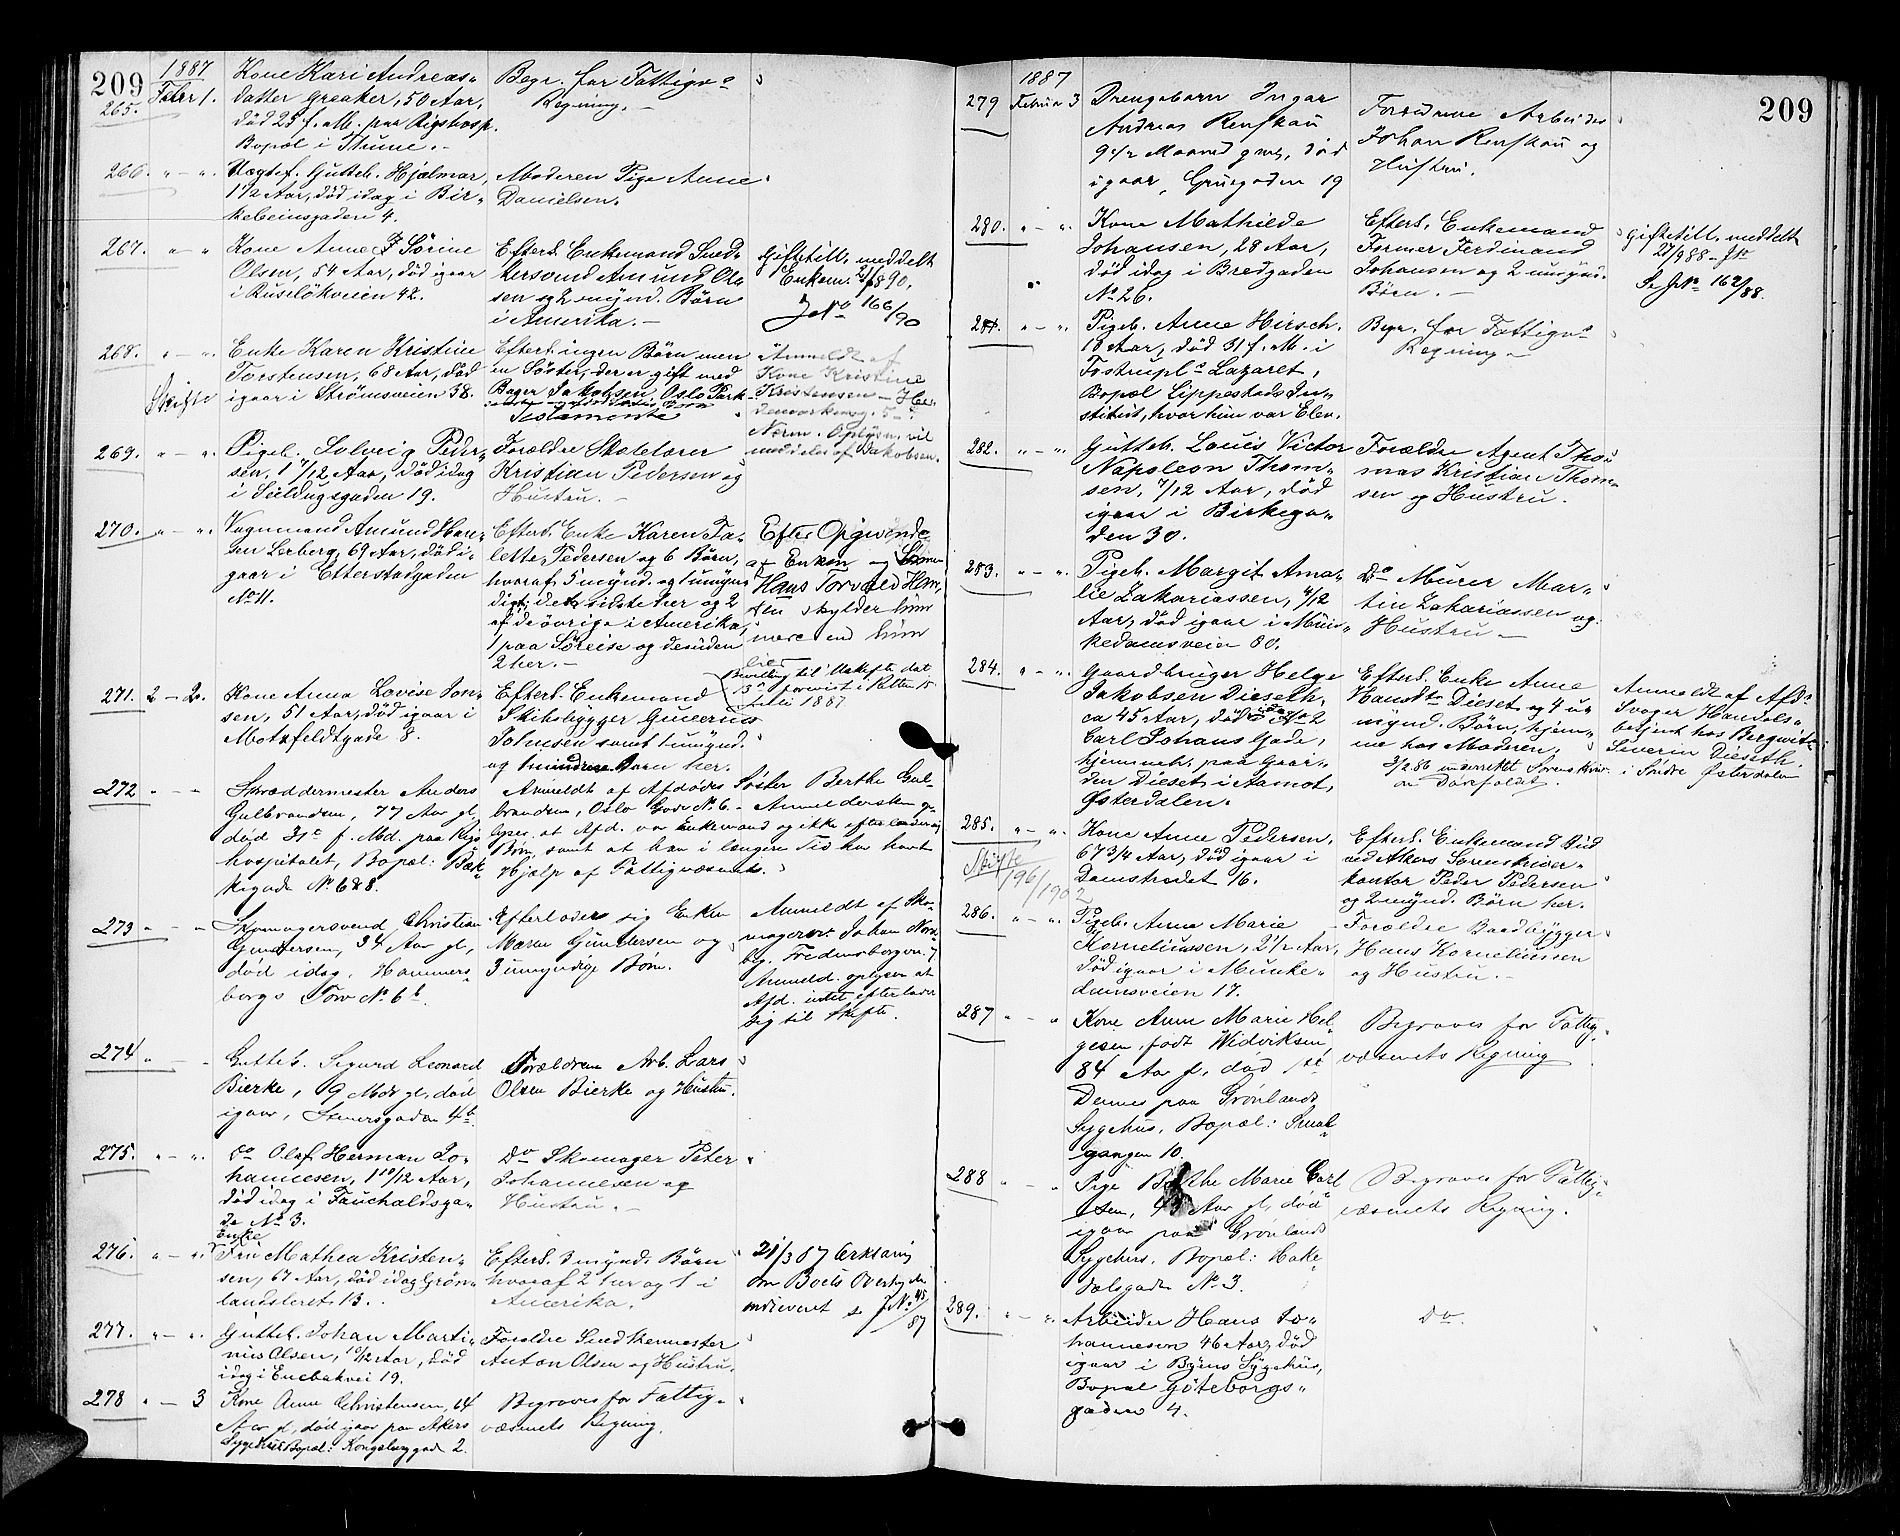 209
1887
265. Febr 1. Kone Kari Andreas-
datter Greaker, 50 Aar,
død 25 f. M. paa Rigshosp.
Bopæl i Thune. -
Begr. for Fattigv.
Regning. -
266. " - " Uægtef. Gutteb. Hjalmar,
1 1/2 Aar, død idag i Bir-
kebeinsgaden 4.
Moderen Pige Anne
Danielsen.
267. " - " Kone Anne F Sørine
Olsen, 54 Aar, død igaar
i Ruseløkveien 42.
Efterl. Enkemand Sned-
kersvend Amund Ol-
sen og 2 mynd. Børn
i Amerika. -
Giftetill. meddelt
Enkem.
JNo 166/90
268. " - " Enke Karen Kristine
Torstensen, 68 Aar, død
igaar i Strømsveien 38.
Skifte
Efterl. ingen Børn men
en Søster, der er gift med
Bager Jakobsen, Oslo
Testamente
Anmeldt af
Kone Kristine
Kristensen
Nærm. Oplysn. vil
meddeles af Jakobsen.
269. " - " Pigeb. Solveig Peder-
sen, 1 7/12 Aar, død idag
i Seildugsgaden 19.
Forældre
Kristian Pedersen og
Hustru. -
270. " - " Vognmand Amund Han-
sen Lerberg, 69 Aar, død i-
gaar i Etterstadgaden
No 11.
Efterl. Enke Karen Ta-
lette Pedersen og 6 Børn,
hvoraf 5 mynd. og 1 umyn-
dig; det sidste her og 2
af de øvrige i Amerika,
1 paa Søreise og desuden
2 her. -
Efter Opgivende
af Enken og Sønnen
Hans Torvald Han-
sen skylder him
mere end him
eier
271. 2 - 2. Kone Anna Lovise Jon-
sen, 51 Aar, død igaar i
Motzfeldtgade 8.
Efterl. Enkemand
Skibsbygger Gunerius
Johnsen samt 1 umynd.
og 1 mindreaa. Barn her.
Bevilling til Uskifte dat
13 forevist i Retten 15
Juli 1887
272 " - " Skræddermester Anders
Gulbrandsen, 77 Aar gl,
død 31te f. Md. paa Rigs-
hospitalet, Bopæl: Bæk-
kegade No 6 & 8.
Anmeldt af Afdødes Søster Berthe Gul-
brandsen, Oslo Gade No. 6. - Anmeldersken op-
lyser, at Afd. var Enkemand og ikke efterlader sig
Børn, samt at han i længere Tid har havt
Hjælp af Fattigvæsenet.
273 " - " Skomagersvend Christian
Gundersen, 34 Aar gl,
død idag, Hammers-
borgs Torv No. 6 b.
Efterlader sig Enken
Maren Gundersen og
3 umyndige Børn.
Anmeldt af Sko-
magersv. Johan Nord-
by, Fredensborgvn. 7
Anmeld. oplyser at
Afd. intet efterlader
sig til Skifte.
274 " - " Gutteb. Sigurd Leonard
Bierke, 9 Mdr gl, død
igaar, Steensgaden 4 b.
Forældrene Arb. Lars
Olsen Bierke og Hustru.
275. " - " Do Olaf Herman Jo-
hannesen, 1 10/12 Aar,
død idag i Fauchaldsga-
de No 3.
Do Skomager Peter
Johannesen og
Hustru. -
276. " - " Enke
Fru Mathea Kristen-
sen, 67 Aar, død idag Grøn-
landsleret 13.
Efterl. 3 mynd. Børn
hvoraf 2 her og 1 i
Amerika.
21/3 87 Erklæring
om Boets Overtagelse
indleveret se JNo 45/87
277. " - " Gutteb. Johan Marti-
nius Olsen, 10/12 Aar, død
idag i Enebakvei 19.
Forældre Snedkermester
Anton Olsen og Hustru.
278 " - 3 Kone Anne Christensen, 64
Aar gl, død igaar paa Akers
Sygehus Bopæl: Kongsberggade 2.
Begraves for Fattig-
væsenets Regning.
209
1887
279 Februar 3 Drengebarn Ingar
Andreas Renskau
9 1/2 Maaned gml, død
igaar, Grusgaden 19
Forældrene Arbeider
Johan Renskau og
Hustru.
280. " - " Kone Mathilde
Johansen, 28 Aar,
død idag i Bredgaden
No 26.
Efterl. Enkemand
Former Ferdinand
Johansen og 2 umynd.
Børn. -
Giftetill. meddelt
27/9 88
Se JNo 162/88.
281. " - " Pigeb. Anne Hirsch.
18 Aar, død 31 f. M. i
Fostrups Lazaret,
Bopæl Lippestads In-
stitut, hvor hun var Elev.
Begr. for Fattigv.
Regning -
282. " - " Gutteb. Louis Victor
Napoleon Thom-
sen, 7/12 Aar, død
igaar i Birkega-
den 30.
Forældre Agent Tho-
mas Kristian Thom-
sen og Hustru.
283. " - " Pigeb. Margit Ama-
lie Zakariassen, 4/12
Aar, død igaar i Mun-
kedamsveien 80.
Do Murer Mar-
tin Zakariassen og
Hustru -
284. " - " Gaardbruger Helge
Jakobsen Dieseth,
ca 45 Aar, død i No 2
Carl Johans Gade,
hjemmeh. paa Gaar-
den Dieset i Aamot,
Østerdalen.
Efterl. Enke Anne
Dieset og 4 u-
mynd. Børn, hjem-
me hos Moderen.
underrettet Sorenskriv-
om Dødsfaldet.
Anmeldt af Afd.
Svoger Handels-
betjent hos Bergwitz
Severin Dieseth.
i Søndre Østerdalen
285. " - " Kone Anne Pedersen,
67 3/4 Aar, død igaar i
Damstrædet 16.
Skifte
196/1902
Efterl. Enkemand Bud
ved Akers Sorenskriver-
kontor Peder Pedersen
og 2 mynd. Børn her.
286. " - " Pigeb. Anna Marie
Korneliussen, 2 1/2 Aar,
død igaar i Munke-
damsveien 17.
Forældre Baadbygger
Hans Korneliussen
og Hustru. -
287 " - " Kone Anne Marie Hel-
gesen, født Widviksen
84 Aar gl, død 1ste
Dennes paa Grønlands
Sygehus, Bopæl: Smal-
gangen 10.
Begraves for Fattig-
væsenets Regning
288 " - " Pige Berthe Marie Carl-
sen, 43 Aar gl, død
igaar paa Grønlands
Sygehus, Bopæl: Hake-
dalsgade No. 3.
Begraves for Fattig-
væsenets Regning.
289. " - " Arbeider Hans Jo-
hannesen 46 Aar, død
igaar i Byens Sygehus,
Bopæl Göteborgs-
gaden 4.
Do.